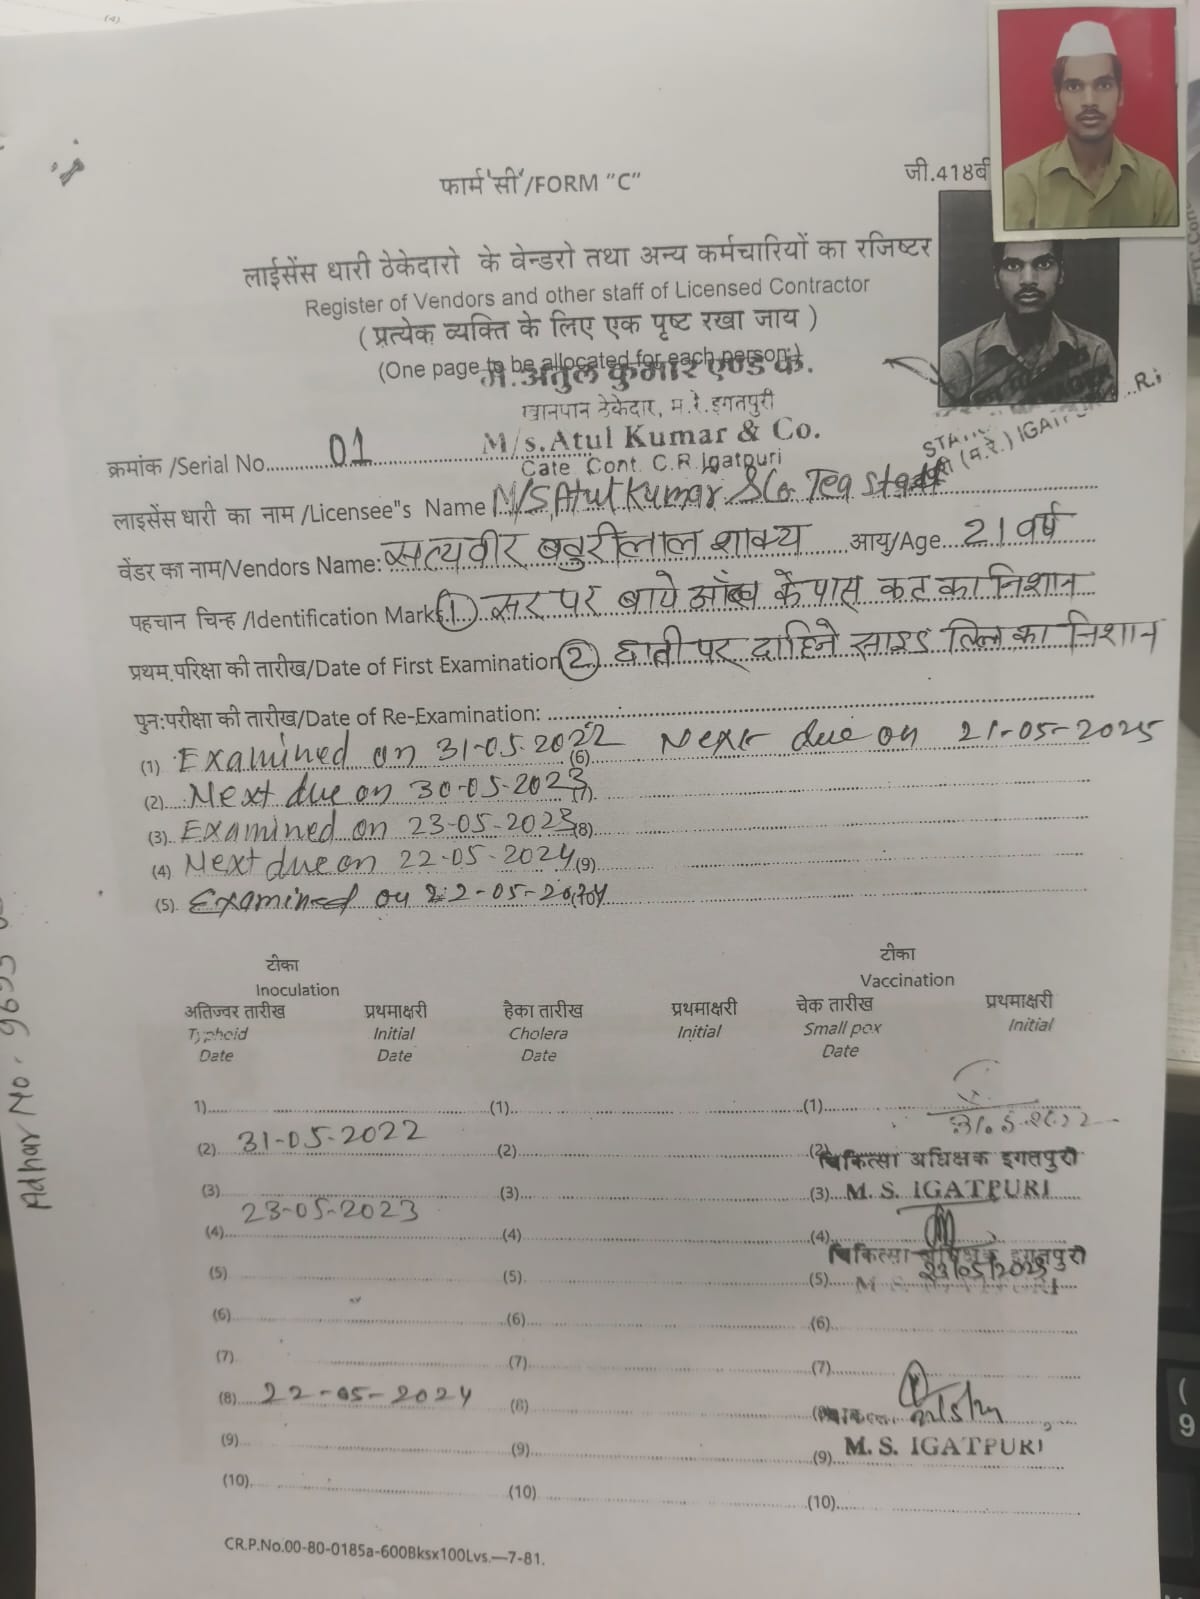 फार्म 'सी'/FORM "C"
जी.418बी
लाईसेंस धारी ठेकेदारो के वेन्डरो तथा अन्य कर्मचारियों का रजिष्टर
Register of Vendors and other staff of Licensed Contractor
( प्रत्येक व्यक्ति के लिए एक पृष्ट रखा जाय )
(One page to be allocated for each person:)
मे. अतुल कुमार एण्ड कं.
खानपान ठेकेदार, म.रे. इगतपुरी
M/s. Atul Kumar & Co.
Cate Cont. C.R. Igatpuri
क्रमांक /Serial No. 01
लाइसेंस धारी का नाम /Licensee"s Name M/S, Atul Kumar & Co Tea Stall
वेंडर का नाम/Vendors Name: सत्यवीर बबुरीलाल शाक्य आयु/Age 21 वर्ष
पहचान चिन्ह /Identification Marks (1) सर पर बाये आँख के पास कट का निशान
प्रथम परिक्षा की तारीख/Date of First Examination (2) छाती पर दाहिने साइड तिल का निशान
पुन:परीक्षा की तारीख/Date of Re-Examination:
(1) Examined on 31-05-2022 (6) Next due on 21-05-2025
(2) Next due on 30-05-2023 (7)
(3) Examined on 23-05-2023 (8)
(4) Next due on 22-05-2024 (9)
(5) Examined on 22-05-2024
टीका टीका
Inoculation Vaccination
अतिज्वर तारीख प्रथमाक्षरी हैका तारीख प्रथमाक्षरी चेक तारीख प्रथमाक्षरी
Typhoid Initial Cholera Initial Small pox Initial
Date Date Date Date
1) (1) (1)
31.5.2022
(2) 31-05-2022 (2) (2)
चिकित्सा अधिक्षक इगतपुरी
(3) (3) (3) M. S. IGATPURI
(4) 23-05-2023 (4) (4)
चिकित्सा अधिक्षक इगतपुरी
23/05/2023
(5) (5) (5)
(6) (6) (6)
(7) (7) (7)
(8) 22-05-2024 (8)
(9) (9) (9) M. S. IGATPURI
(10) (10) (10)
CR.P.No.00-80-0185a-600Bksx100Lvs.—7-81.
Adhar No.